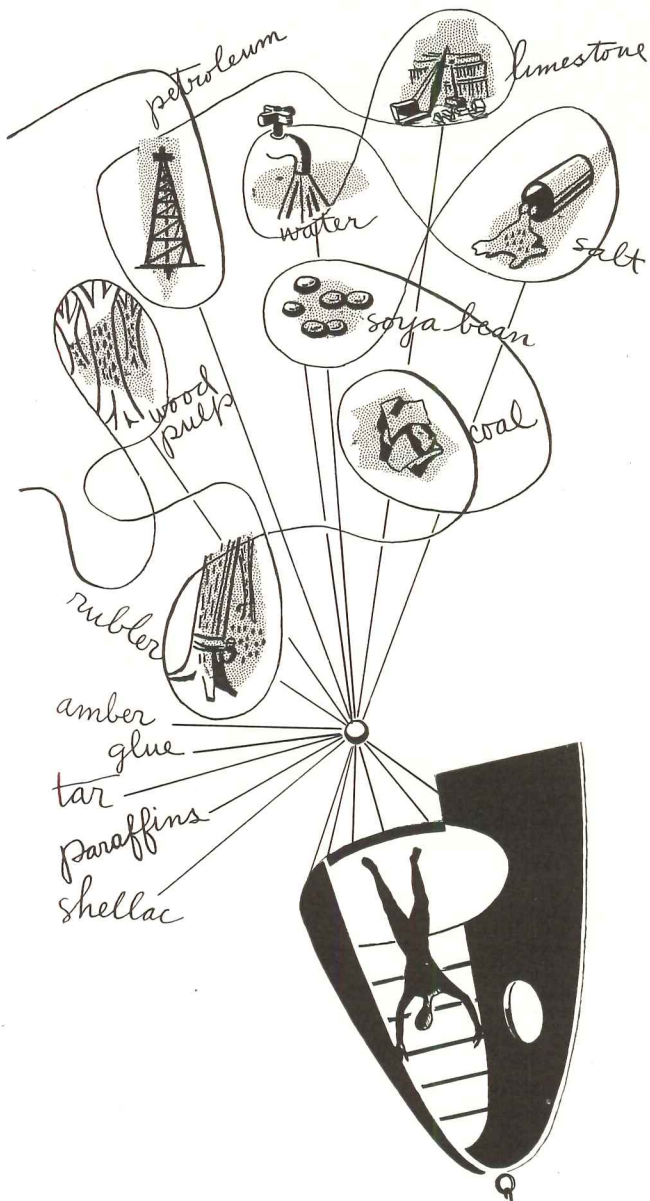 petroleum
limestone
water
salt
soya bean
wood
pulp
coal
rubber
amber
glue
tar
paraffins
shellac